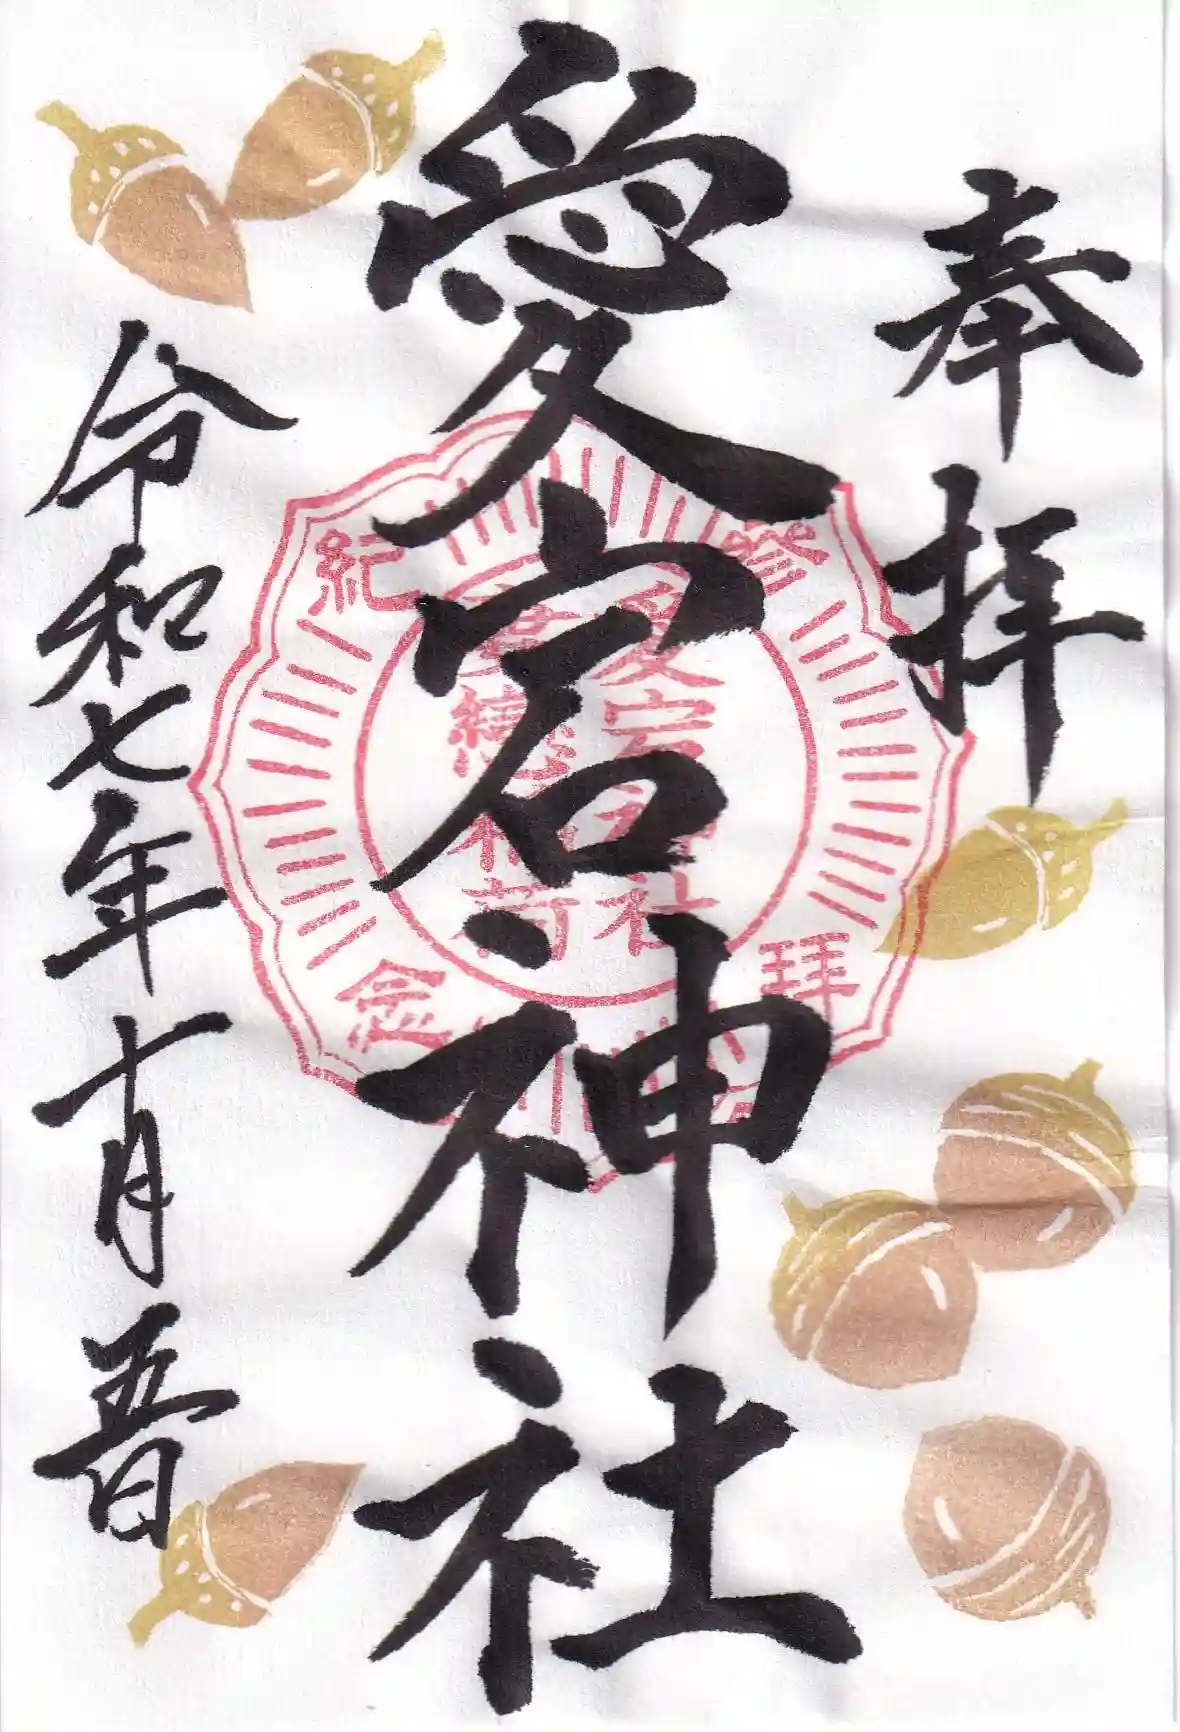 奉拝
愛宕神社
令和七年十月五日
參拝
紀念
愛宕神社